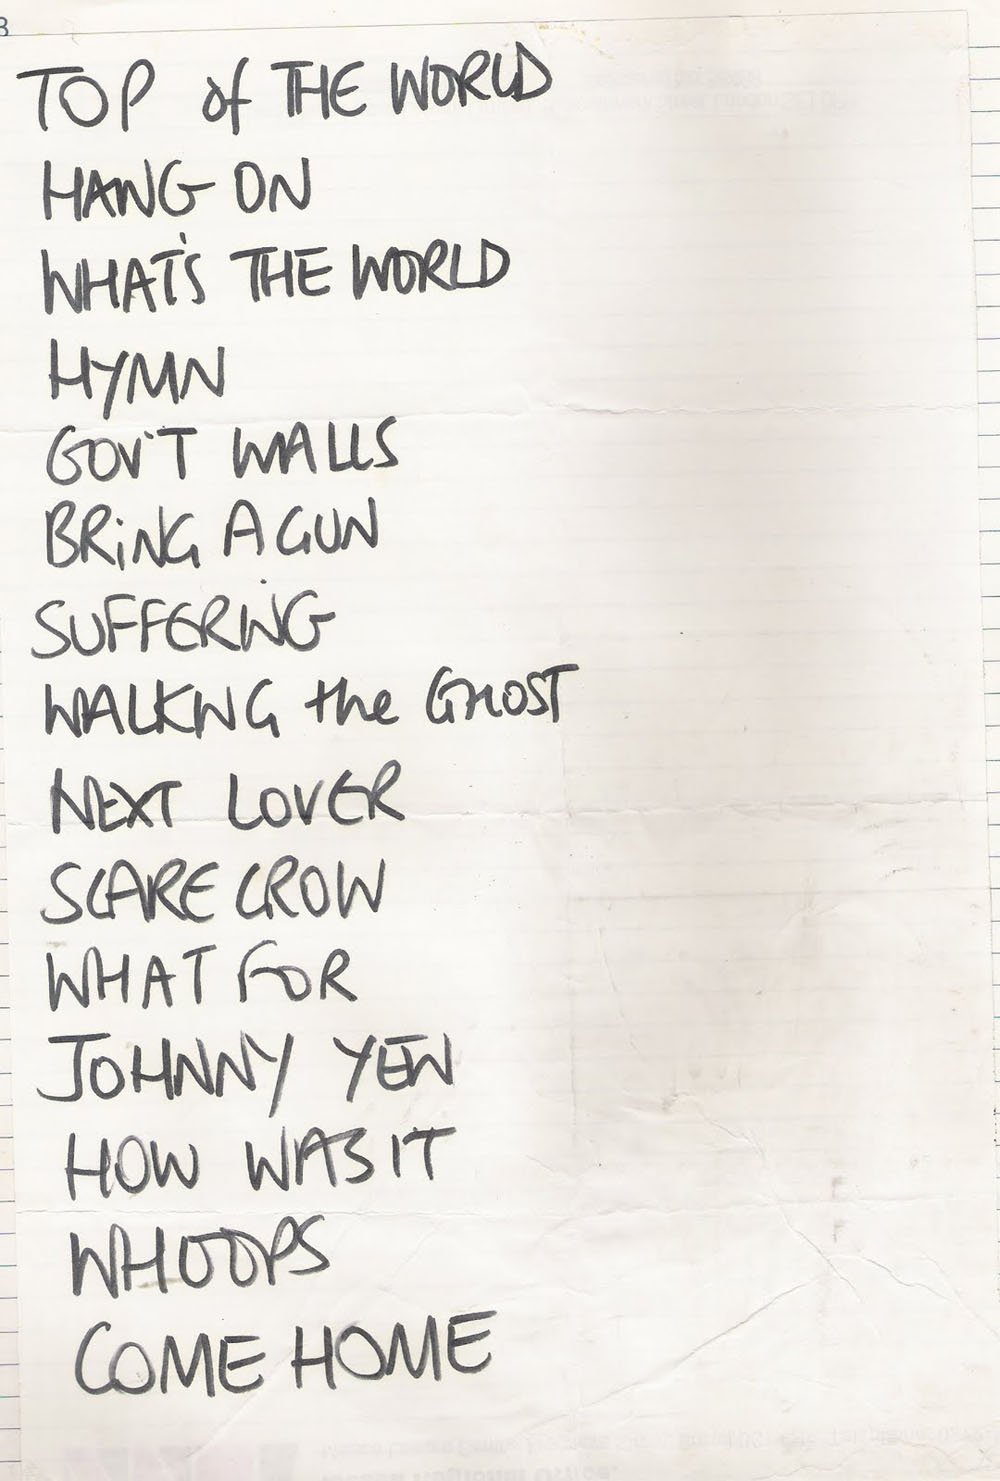 TOP of THE WORLD
HANG ON
WHAT'S THE WORLD
HYMN
GOV'T WALLS
BRING A GUN
SUFFERING
WALKING the GHOST
NEXT LOVER
SCARECROW
WHAT FOR
JOHNNY YEN
HOW WAS IT
WHOOPS
COME HOME